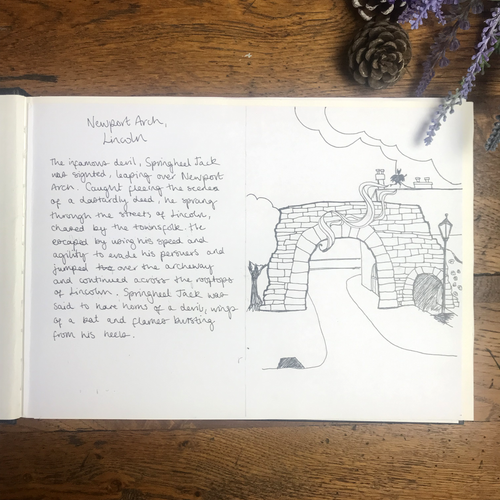 Newport Arch,
Lincoln
The infamous devil, Springheel Jack
was sighted, leaping over Newport
Arch. Caught fleeing the scenes
of a dastardly deed, he sprang
through the streets of Lincoln,
chased by the townsfolk. He
escaped by using his speed and
agility to evade his persuers and
jumped over the archeway
and continued across the rooftops
of Lincoln. Springheel Jack was
said to have horns of a devil, wings
of a bat and flames bursting
from his heels.